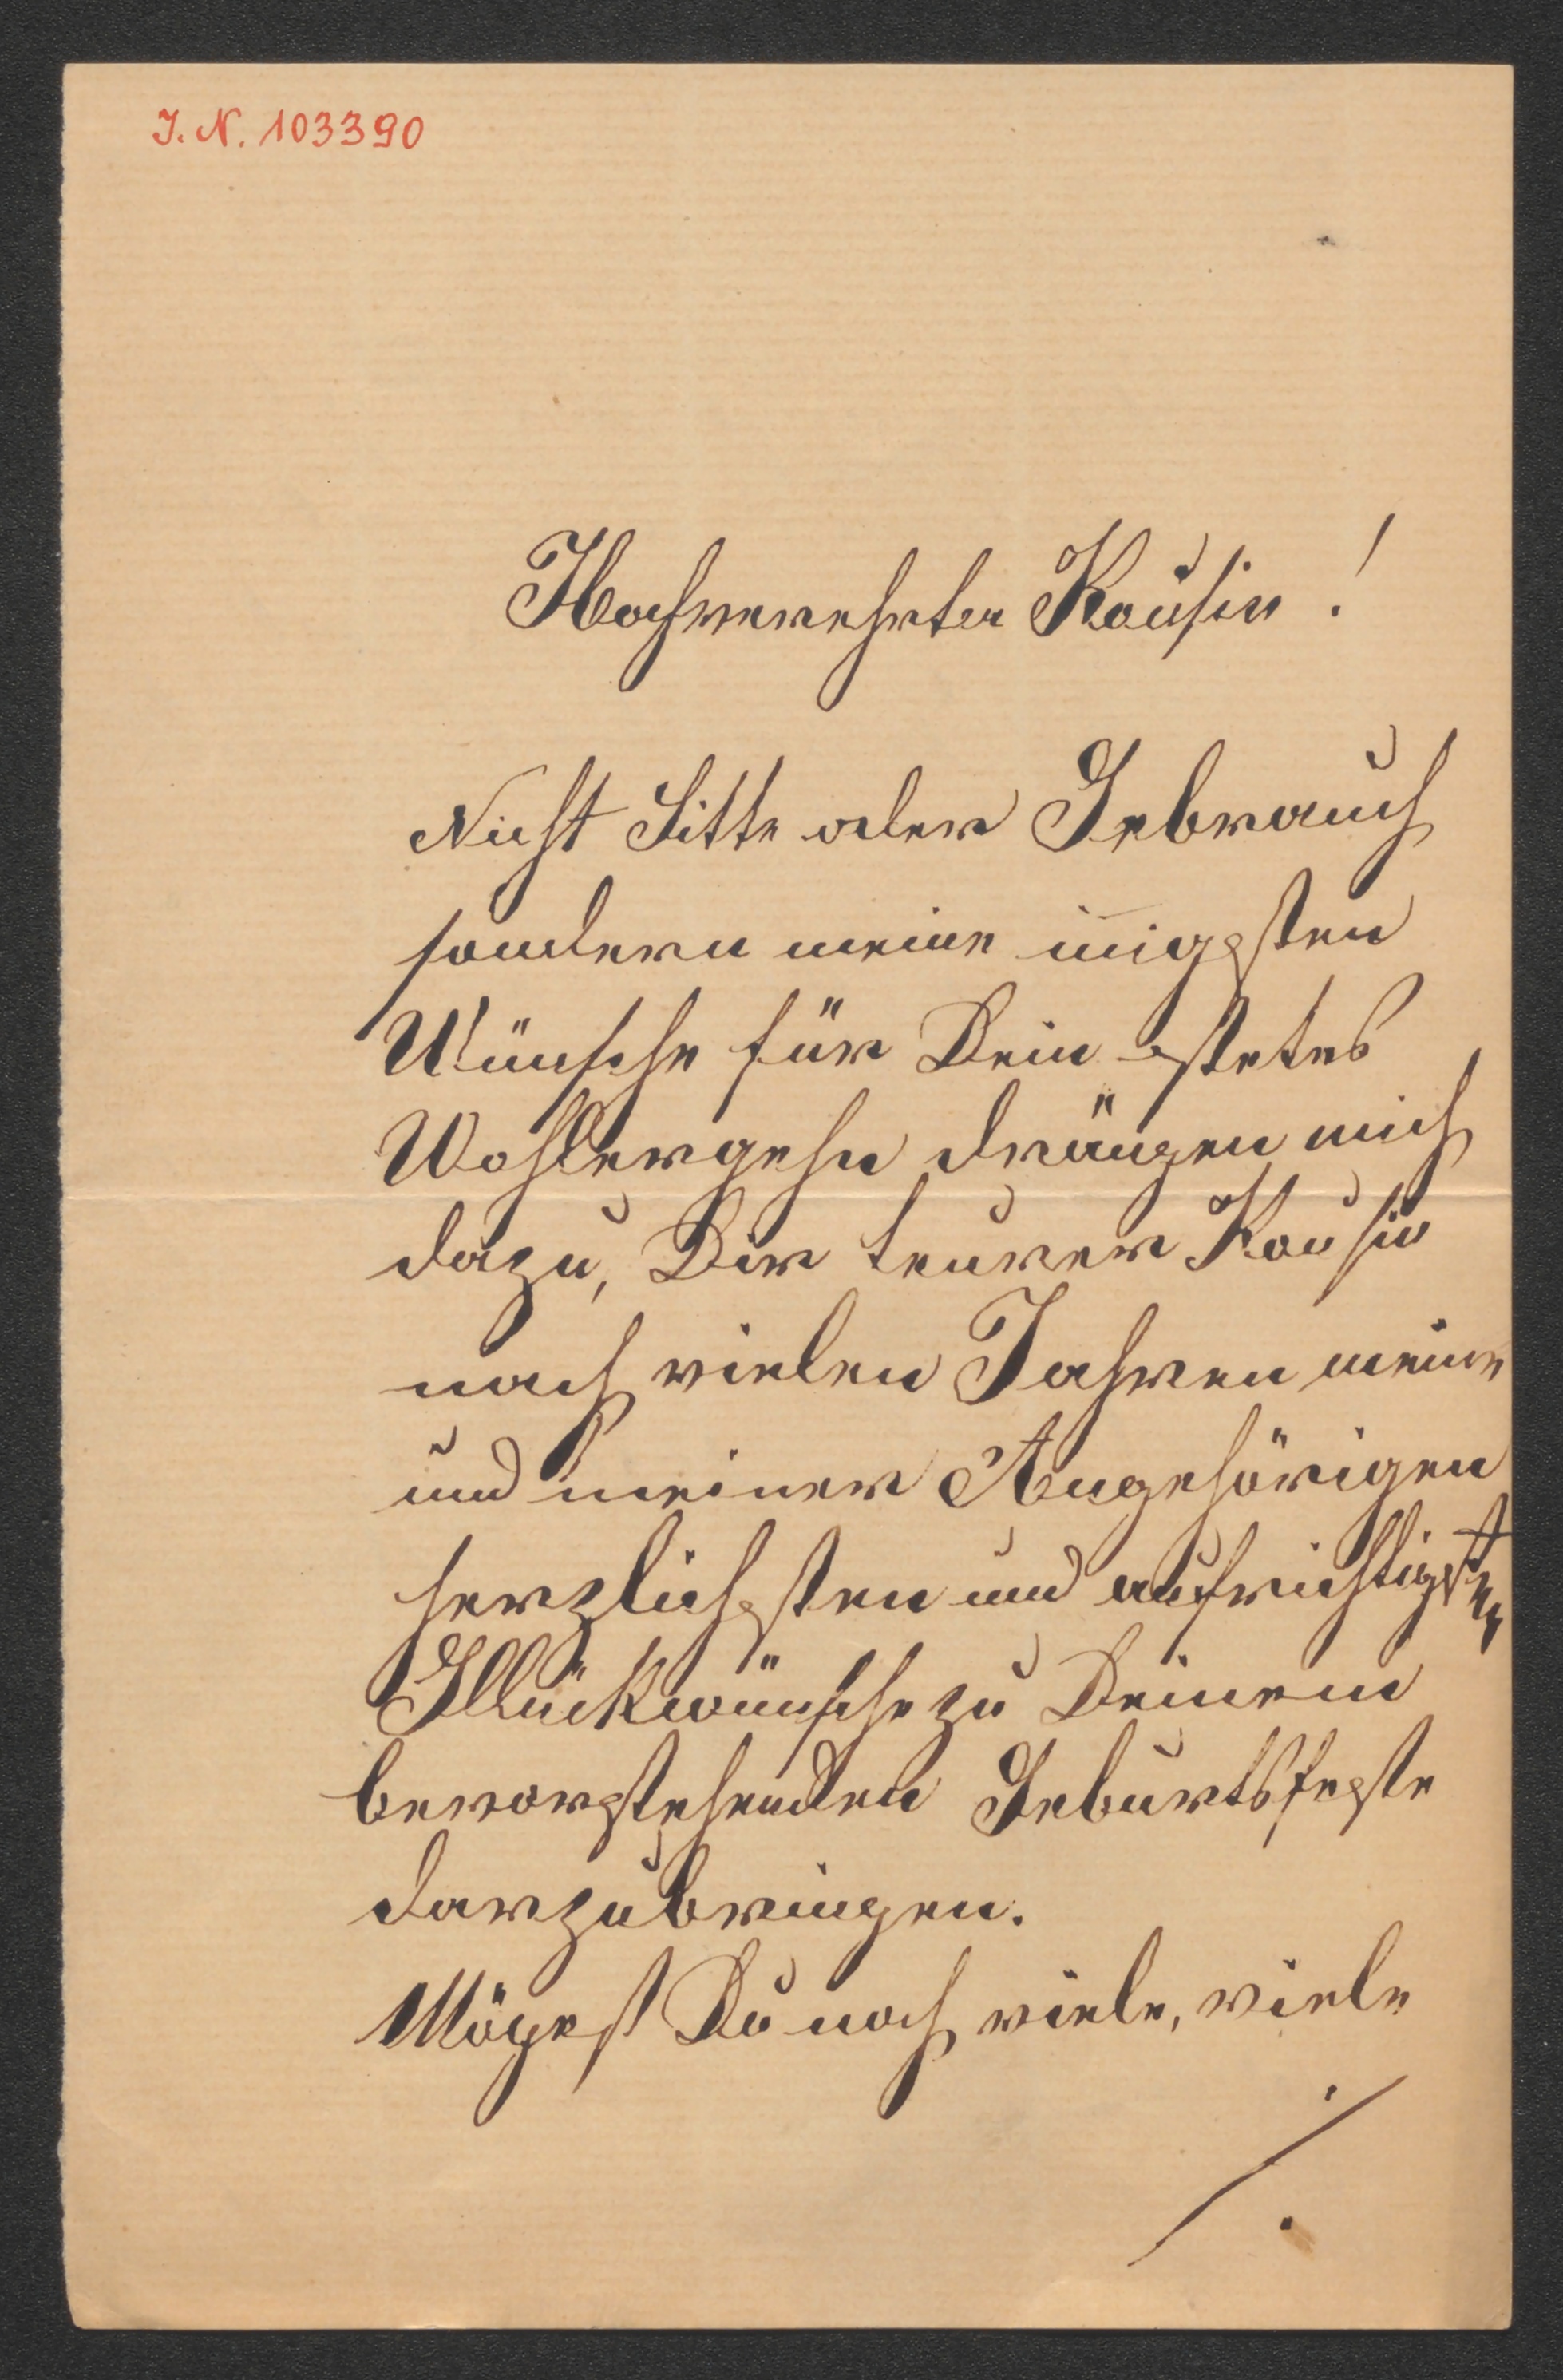 J. N. 103390
Hochverehrter Kousin !
Nicht Sitte oder Gebrauch
sondern meine in̅igsten
Wünsche für Dein stetes
Wohlergehn drängen mich
dazu, Dir teurer Kousin
nach vielen Jahren meine
und meiner Angehörigen
herzlichsten und aufrichtigsten
Glückwünsche zu Deinem
bevorstehenden Geburtsfeste
darzubringen.
Mögest Du noch viele, viele
./.